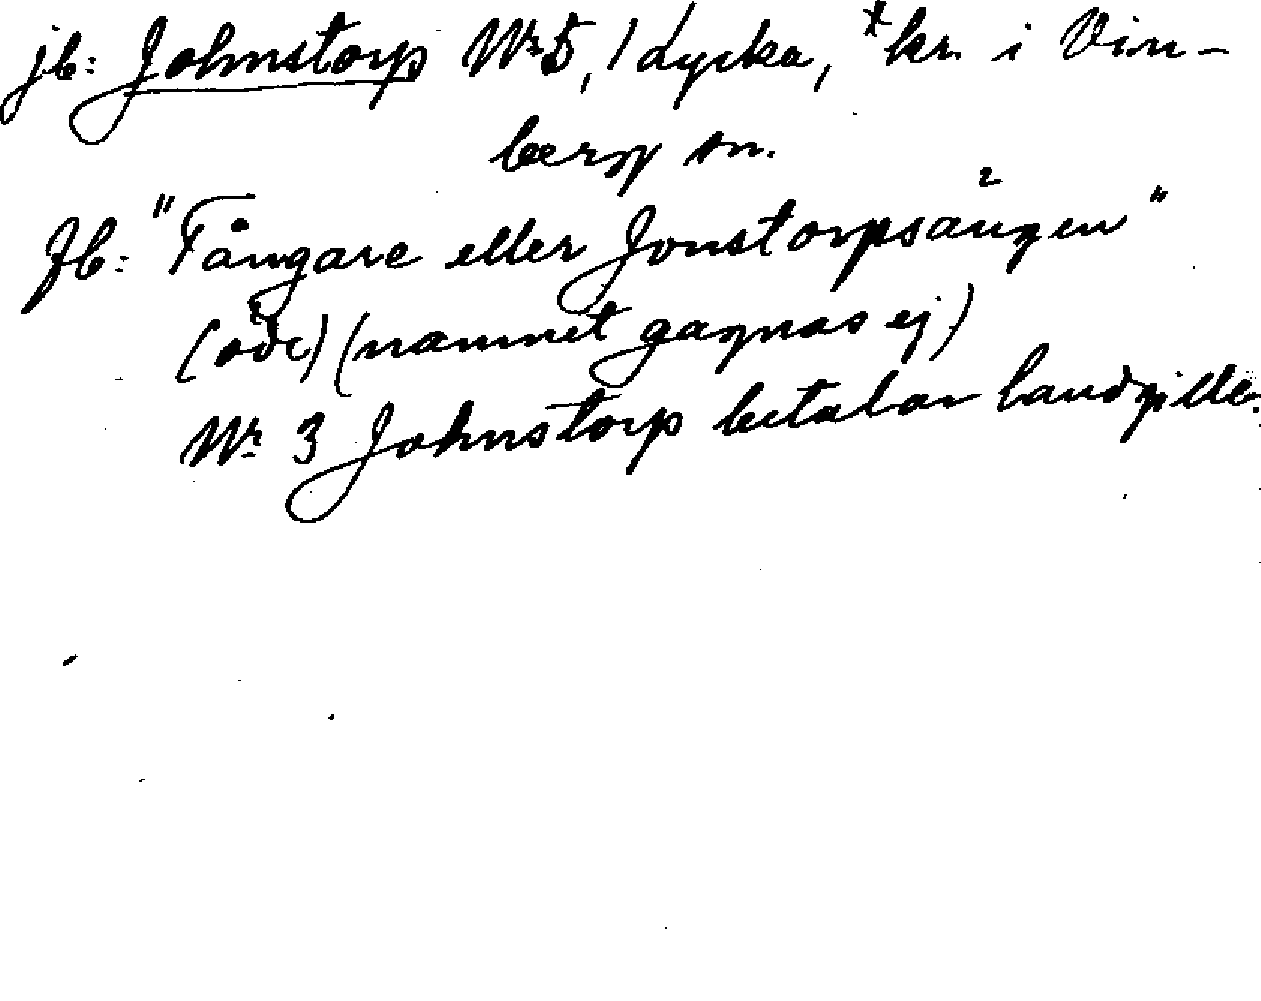 jb: Johnstorp Nr 5, 1 Lycka, *kr. i Vin-
berg sn.
Jb: "Tångare eller Jonstorpsängen"
(öde) (namnet gagnas ej)
Nr 3 Johnstorp betalar landgille.